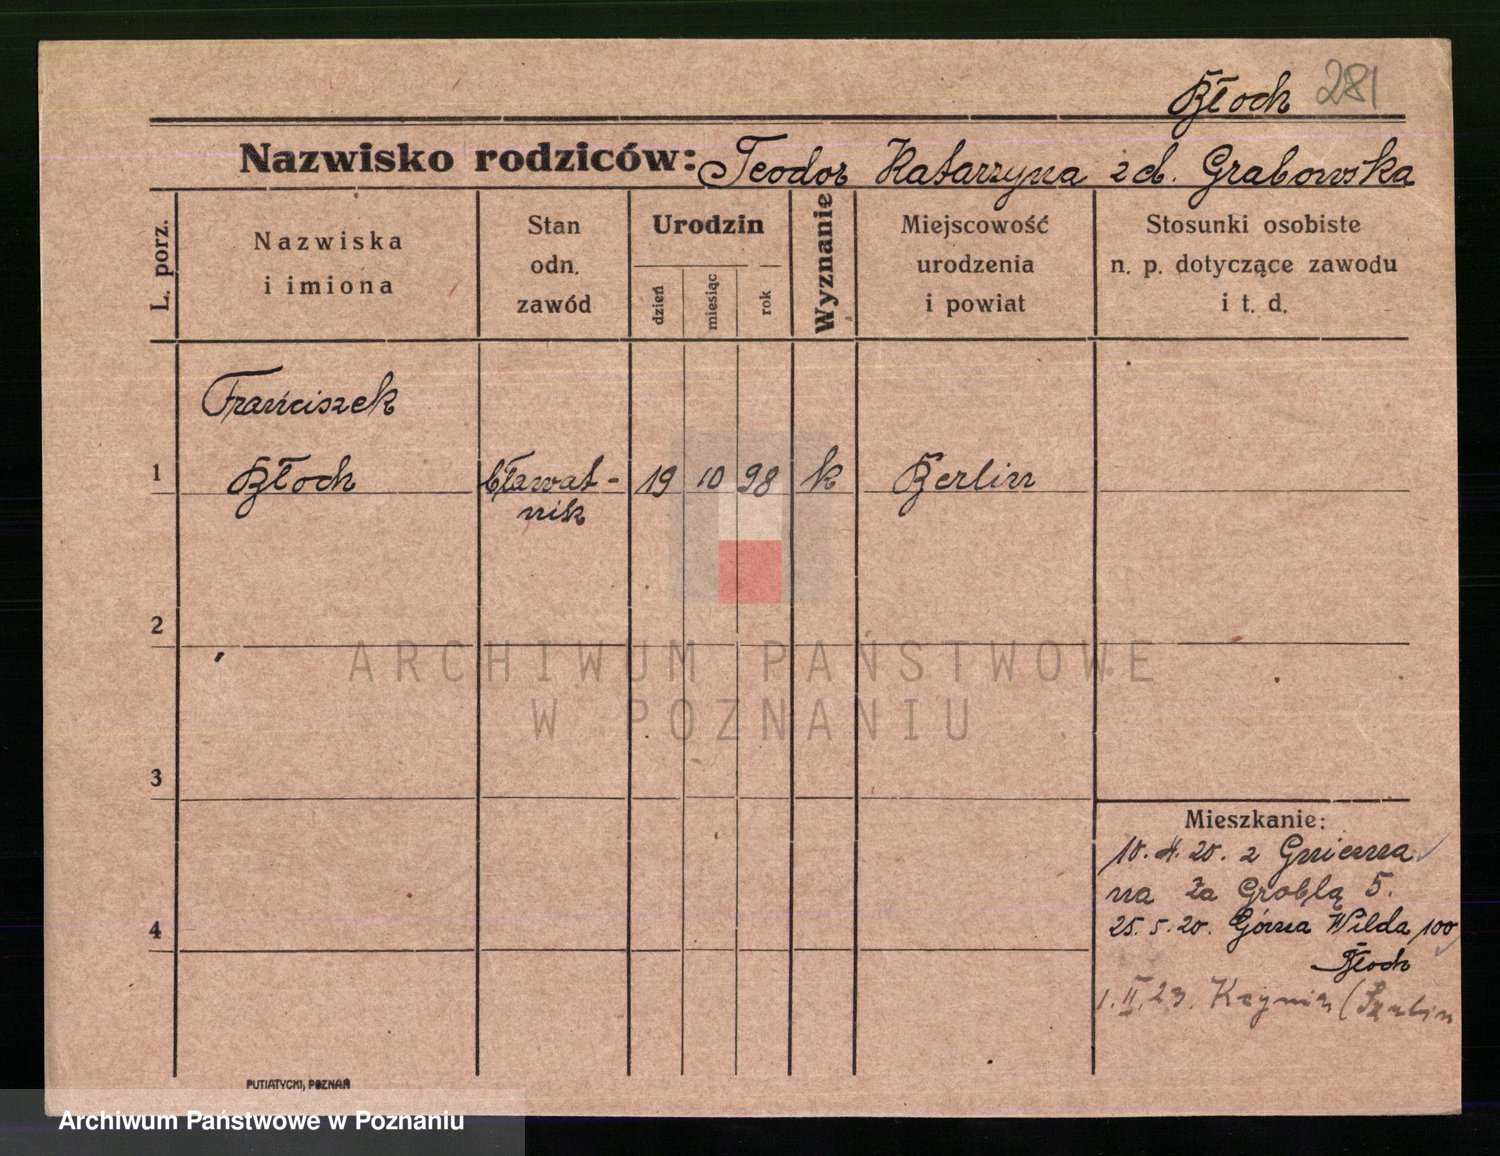 Błoch 281
Nazwisko rodziców: Teodor Katarzyna zd. Grabowska
L. porz.
Nazwiska
i imiona
Stan
odn.
zawód
Urodzin
dzień
miesiąc
rok
Wyznanie
Miejscowość
urodzenia
i powiat
Stosunki osobiste
n. p. dotyczące zawodu
i t. d.
Franciszek
1 Błoch bławat- 19 10 98 k Berlin
nik
2
ARCHIWUM PAŃSTWOWE
W POZNANIU
3
Mieszkanie:
10. 4. 20. z Gniezna
na Za Groblą 5.
4
25. 5. 20. Górna Wilda 100
Błoch
1. II. 23. Kcynia (Szubin
PUTIATYCKI, POZNAŃ
Archiwum Państwowe w Poznaniu